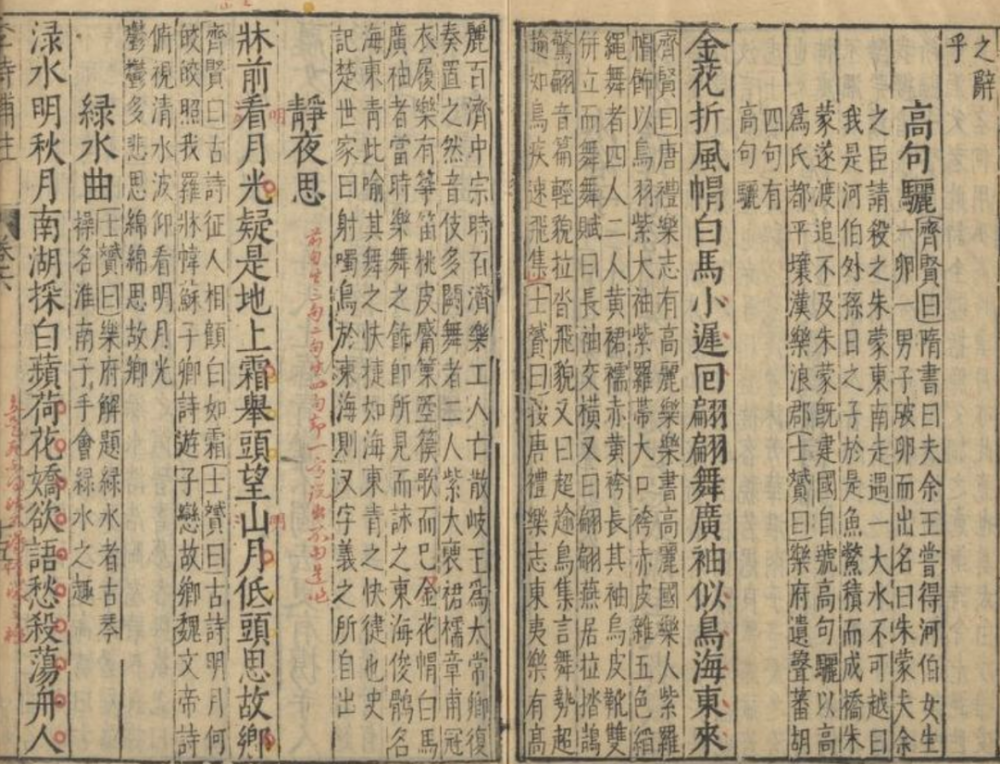 之辭
乎
高句驪齊賢曰隋書曰夫余王嘗得河伯女生
一卵一男子破卵而出名曰朱蒙夫余
之臣請殺之朱蒙東南走遇一大水不可越曰
我是河伯外孫日之子於是魚鱉積而成橋朱
蒙遂渡追不及朱蒙旣建國自號高句驪以高
爲氏都平壤漢樂浪郡士贇曰樂府遺聲蕃胡
四句有
高句驪
金花折風帽白馬小遲回翩翩舞廣袖似鳥海東來
齊賢曰唐禮樂志有高麗樂樂書高麗國樂人紫羅
帽飾以鳥羽紫大袖紫羅帶大口袴赤皮雜五色縚
繩舞者四人二人黃裙襦赤黃袴長其袖烏皮靴雙
併立而舞舞賦曰長袖交橫又曰翩翩燕居拉㧺鵠
驚翩音篇輕貌拉沓飛貌又曰超逾鳥集言舞勢超
逾如鳥疾速飛集士贇曰按唐禮樂志東夷樂有高
麗百濟中宗時百濟樂工人亡散岐王爲太常卿復
奏置之然音伎多闕舞者二人紫大袖裙襦章甫冠
衣履樂有箏笛桃皮觱篥箜篌歌而巳金花帽白馬
廣袖者當時樂舞之飾即所見而詠之東海俊鶻名
海東青此喻其舞之快捷如海東青之快徤也史
記楚世家曰射噣鳥於東海則又字義之所自出
靜夜思
牀前看月光疑是地上霜舉頭望山月低頭思故鄉
明
明
齊賢曰古詩征人相顧白如霜士贇曰古詩明月何
皎皎照我羅牀幃蘇子卿詩遊子戀故鄉魏文帝詩
俯視清水波仰看明月光
鬱鬱多悲思綿綿思故鄉
緑水曲士贇曰樂府解題緑水者古琴
操名淮南子手會緑水之趣
淥水明秋月南湖採白蘋荷花嬌欲語愁殺蕩舟人
李詩補註
卷六